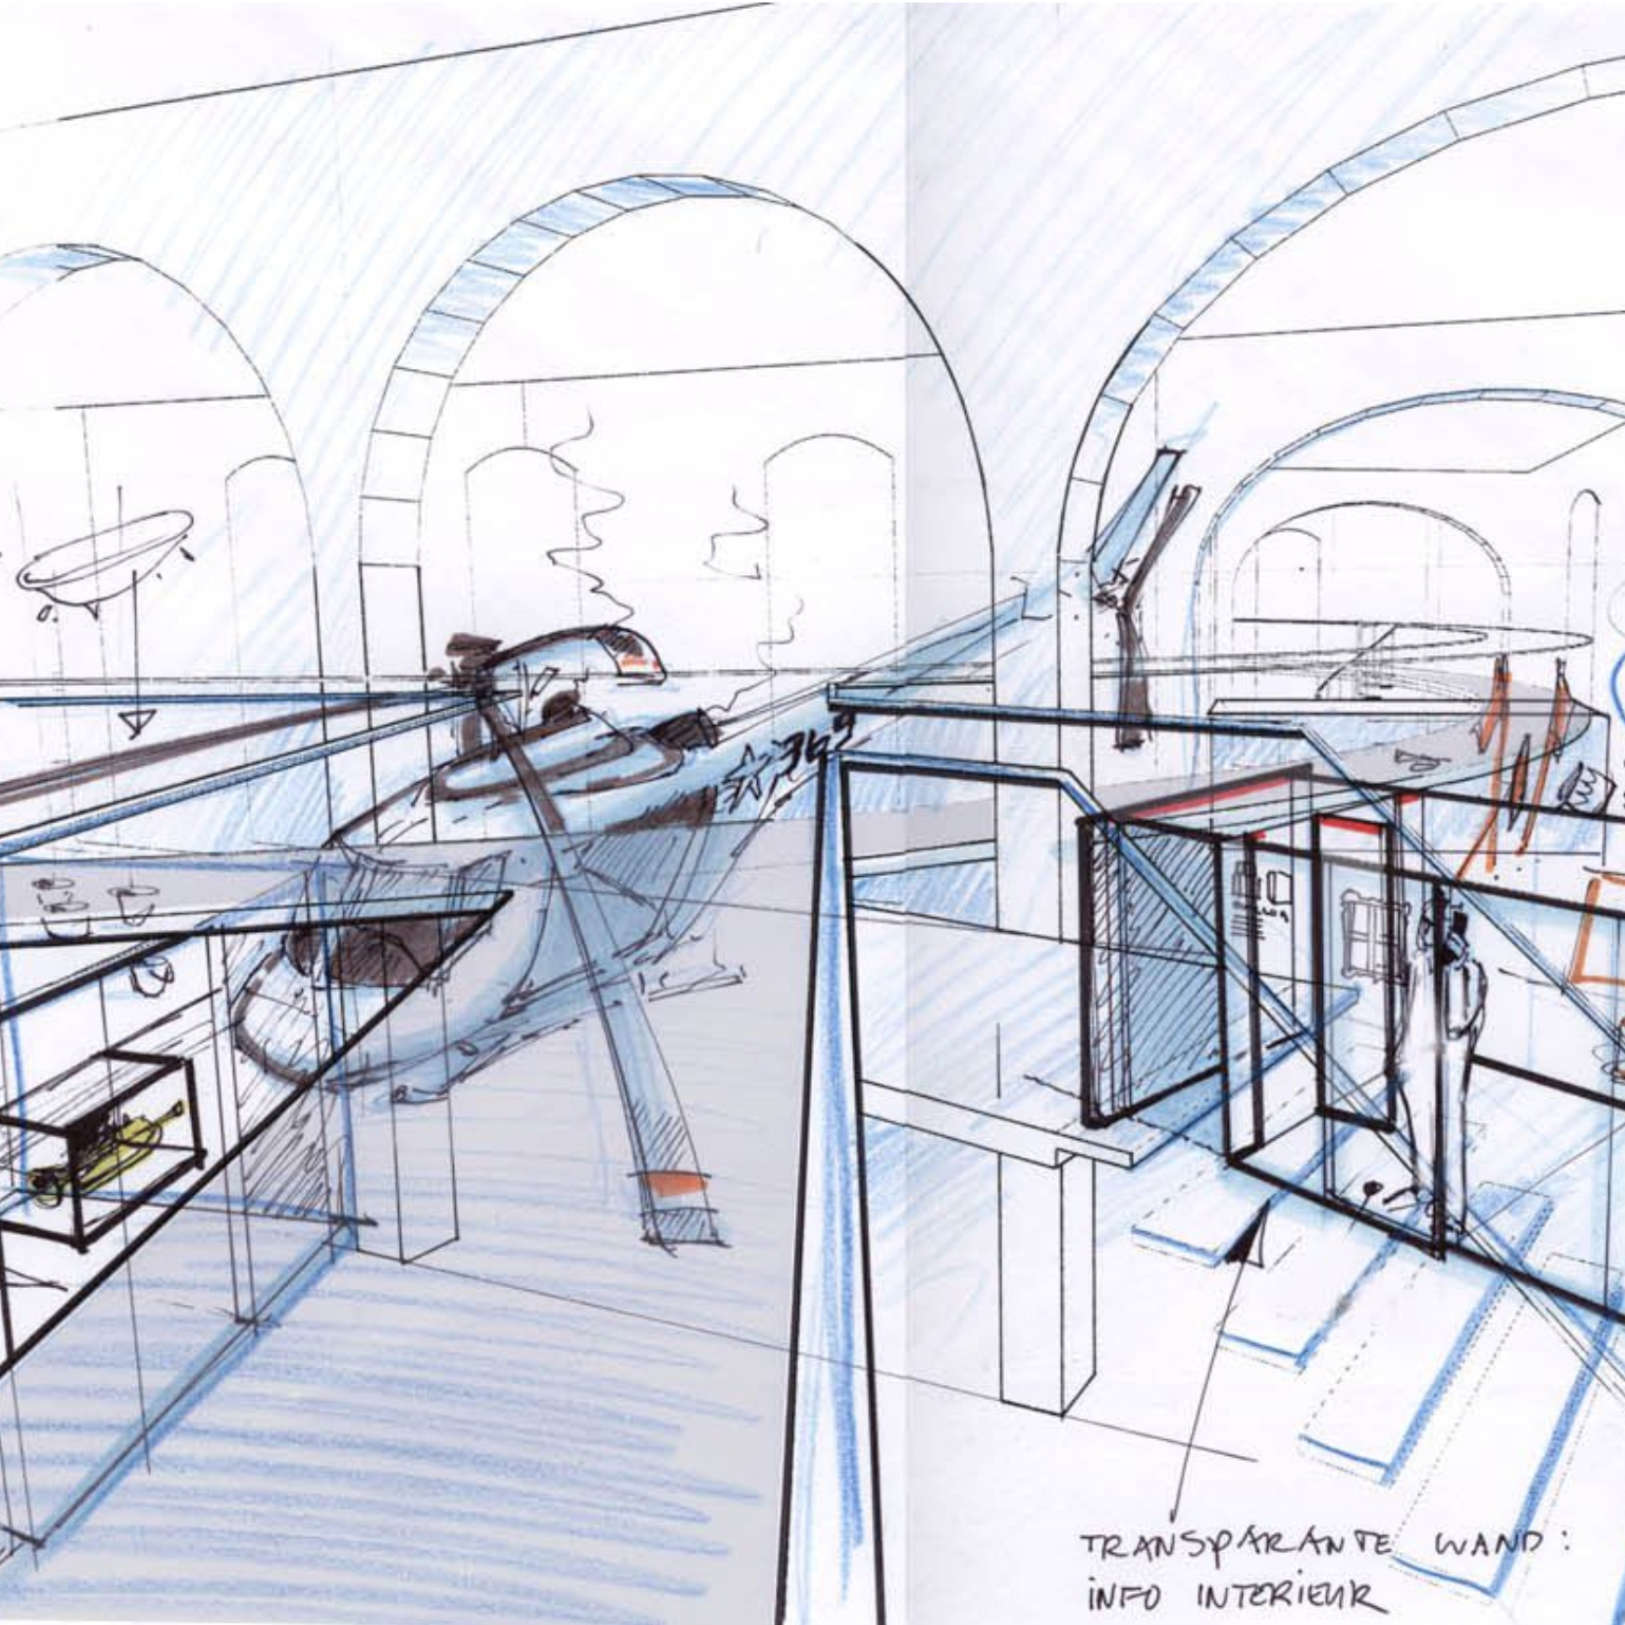 TRANSPARANTE WAND:
INFO INTERIEUR